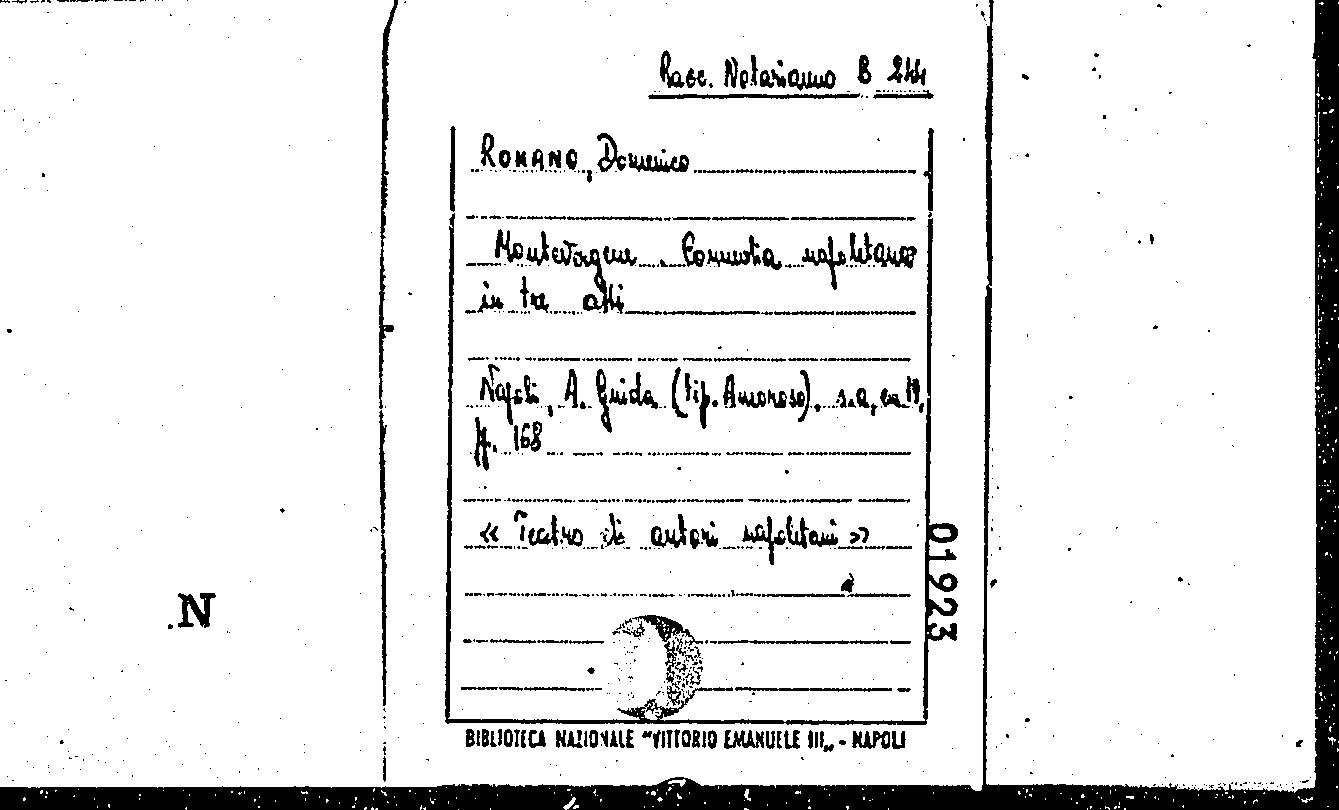 Racc. Notarianno B 244
ROMANO, Domenico
Montevergine. Commedia napoletana
in tre atti
Napoli, A. Guida (tip. Amoroso). s.a, cm 19,
pp. 168
« Teatro di autori napoletani »
01923
.N
BIBLIOTECA NAZIONALE "VITTORIO EMANUELE III„ - NAPOLI